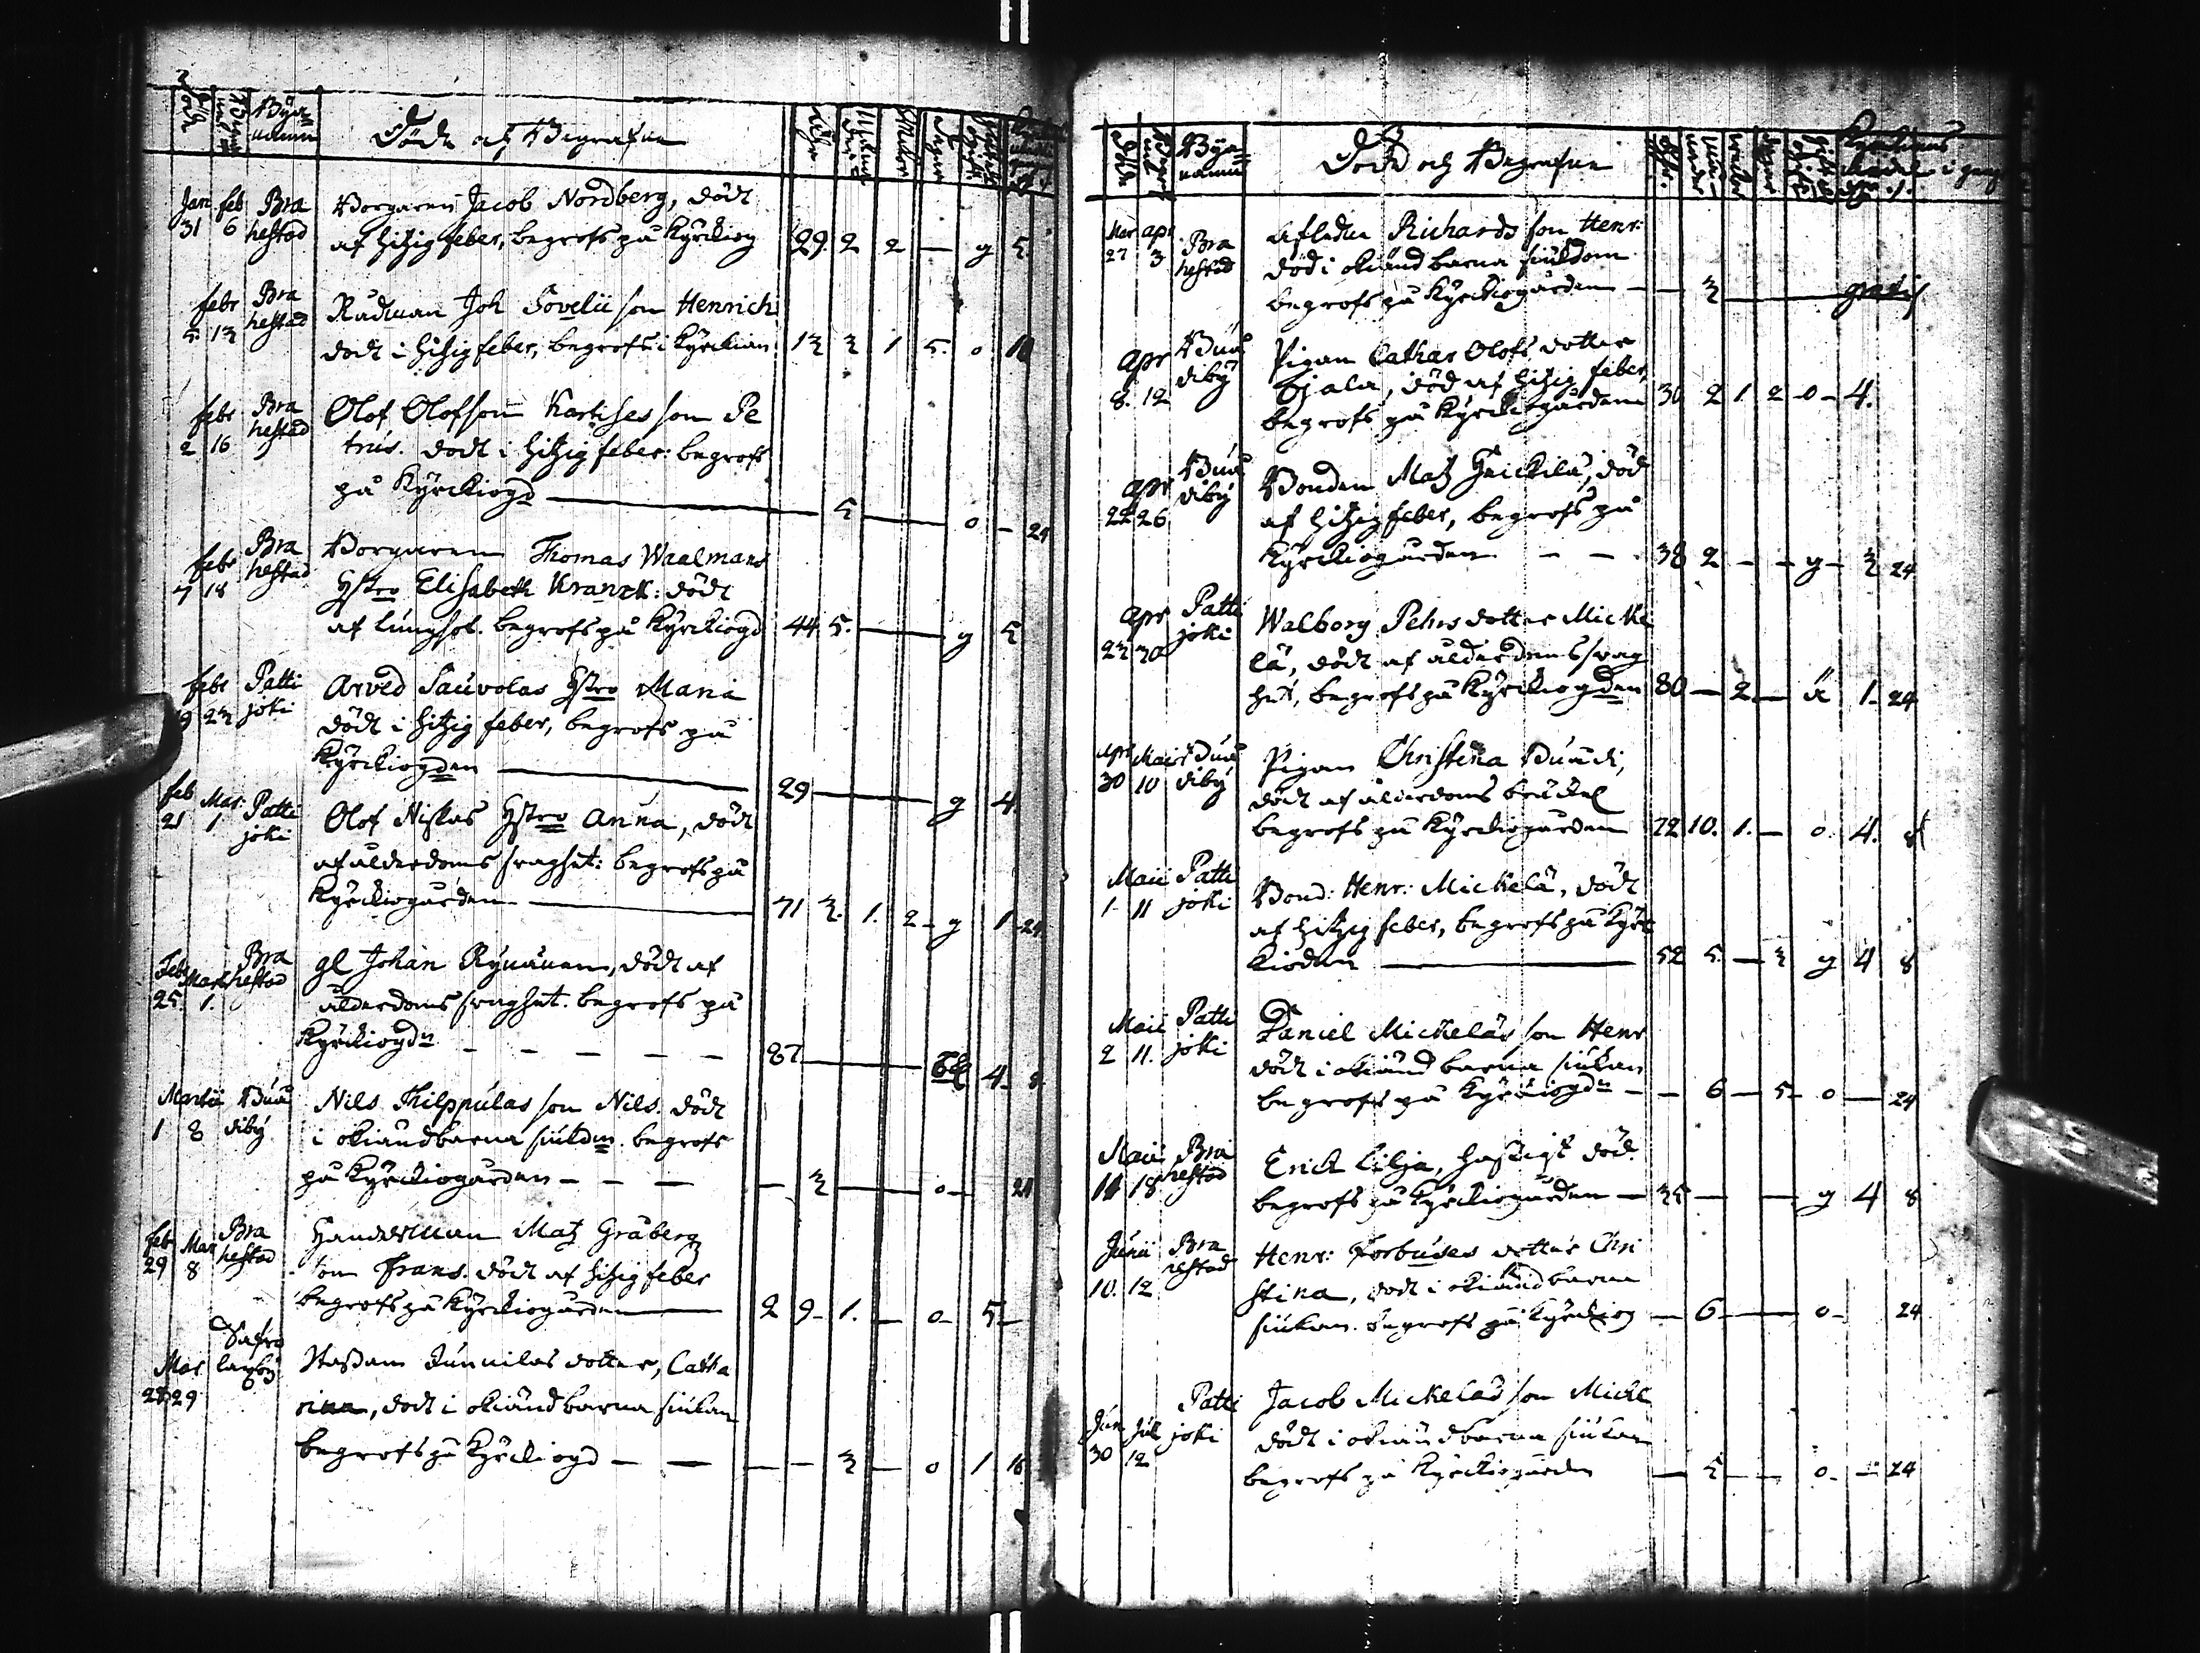 Död
Begraf
Byanamn
Döde och Begrafne
Åhr
Månader
Wekor
Dagar
Jan 31 feb 6 Brahestad
Borgaren Jacob Nordberg, dödt
af hitzig feber, begrofs på Kyrckiog 29 2 2 — g 5
febr 5. 13 Brahestad
Rådman Joh Sovelii son Henrich
dödt i hitzig feber, begrofs i Kyrckian 13 3 1 5. o 10
febr 2 16 Brahestad
Olof Olofson Kartises son Pe
trus. dödt i hitzig feber: begrofs
på Kyrckiogd — 5 — o — 24
febr 7 18 Brahestad
Borgaren Thomas Waalmans
Hstro Elisabeth Krank: dödt
af lungsot. begrofs på Kyrckiogd 44 5. — g 5
febr 19 23 Pattijoki
Arved Sauvolas Hstro Maria
dödt i hitzig feber, begrofs på
Kyrckiogden — 29 — g 4.
feb 21 Mar: 1 Pattijoki
Olof Niskas Hstro Anna, dödt
af ålderdoms svaghet: begrofs på
Kyrckiogården — 71 3. 1. 2 — g 1 24
Febr 25. Mart 1. Brahestad
gl Johan Rynänen, dödt af
ålderdoms svaghet. begrofs på
Kyrckiogdn — — — — — 87 — 4 8
Martii 1 8 Buudiby
Nils Philppulas son Nils. dödt
i okiänd barna siukdm. begrofs
på Kyrckiogården — — — — 3 — o — 24
feb 29 Mar 8 Brahestad
Handverckman Matz Gråberg
son Frans. dödt af hitzig feber
begrofs på Kyrckiogården — 2 9 — 1. — o — 5 —
Mar 28 29 Salolaxby
Staffan Junnilas dotter, Catha
rina, dödt i okiänd barna siukan
begrofs på Kyrckiogd — — — — 3 — o 1 16
Död
Begraf
Byanamn
Döde och Begrafne
Åhr.
Månader
Wekor
Dagar
Kyrckians
Mar 27 apr 3 Brahestad
Afledne Richards son Henr:
död i okiänd barna siukdom
begrofs på Kyrckiogården — — 3 — gratis
apr 8. 12 Buudiby
Pigan Cathar Olofs dotter
Ojala, död af hitzig feber,
begrofs på Kyrckiogården 30 2 1. 2 o — 4.
apr 22 26 Buudiby
Bonden Matz Heickilä, död
af hitzig feber, begrofs på
Kyrckiogården — — . 38 2 — — g — 3 24
apr 23 30 Pattijoki
Walborg Pehrs dotter Micke
lä, dödt af ålderdoms svag
het, begrofs på Kyrckiogden 80 — 2 — ä 1 — 24
apr 30 Maii 10 Buudiby
Pigan Christina Buudi,
dödt af ålderdoms bräckel
begrofs på Kyrckiogården 72 10. 1. — o. 4. 8
Maii 1. 11 Pattijoki
Bond: Henr: Mickelä, dödt
af hitzig feber, begrofs på Kyrc
kiogden — 52 5. — 3 g 4 8
Maii 2 11. Pattijoki
Daniel Mickeläs son Henr
dödt i okiänd barna siukan
begrofs på Kyrckiogdn — — 6 — 5 — o — 24
Maii 14 18 Brahestad
Erich Lilja, hastigt död.
begrofs på Kyrckiogården — 35 — — g 4 8
Junii 10. 12 Brahestad
Henr: Forbuses dotter Chri
stina, dödt i okiänd barna
siukan. begrofs på Kyrckiog — 6 — — o — 24
Jun 30 Jul 12 Pattijoki
Jacob Mickeläs son Mickl
dödt i okiänd barna siukan
begrofs på Kyrckiogården — 5 — — o — — 24